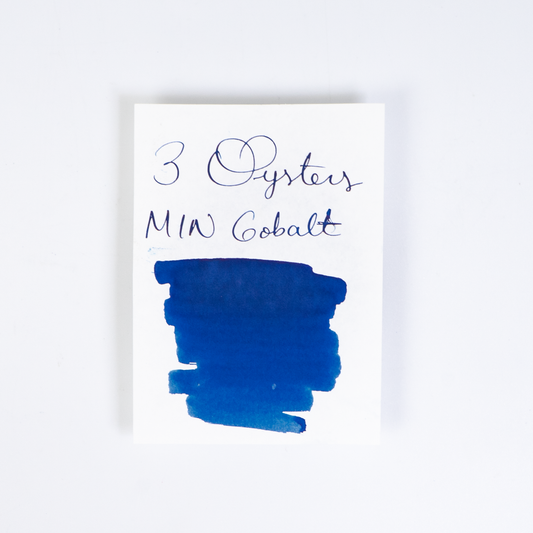 3 Oysters
MIN Cobalt